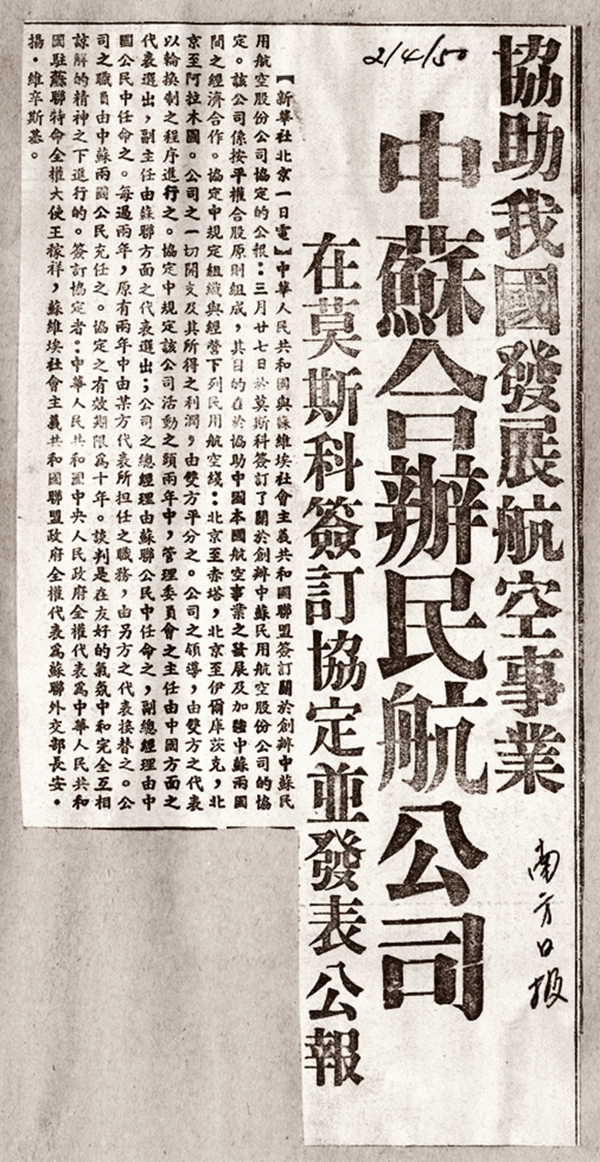 協助我國發展航空事業
南方日报
2/4/50
中蘇合辦民航公司
在莫斯科簽訂協定並發表公報
【新華社北京一日電】中華人民共和國與蘇維埃社會主義共和國聯盟簽訂關於創辦中蘇民
用航空股份公司協定的公報：三月廿七日於莫斯科簽訂了關於創辦中蘇民用航空股份公司的協
定。該公司係按平權合股原則組成，其目的在於協助中國本國航空事業之發展及加強中蘇兩國
間之經濟合作。協定中規定組織與經營下列民用航空綫：北京至赤塔，北京至伊爾庫茨克，北
京至阿拉木圖。公司之一切開支及其所得之利潤，由雙方平分之。公司之領導，由雙方之代表
以輪換制之程序進行之。協定中規定該公司活動之頭兩年中，管理委員會之主任由中國方面之
代表選出，副主任由蘇聯方面之代表選出；公司之總經理由蘇聯公民中任命之，副總經理由中
國公民中任命之。每過兩年，原有兩年中由某方代表所担任之職務，由另方之代表接替之。公
司之職員由中蘇兩國公民充任之。協定之有效期限爲十年。談判是在友好的氣氛中和完全互相
諒解的精神之下進行的。簽訂協定者：中華人民共和國中央人民政府全權代表爲中華人民共和
國駐蘇聯特命全權大使王稼祥，蘇維埃社會主義共和國聯盟政府全權代表爲蘇聯外交部長安·
揚·維辛斯基。